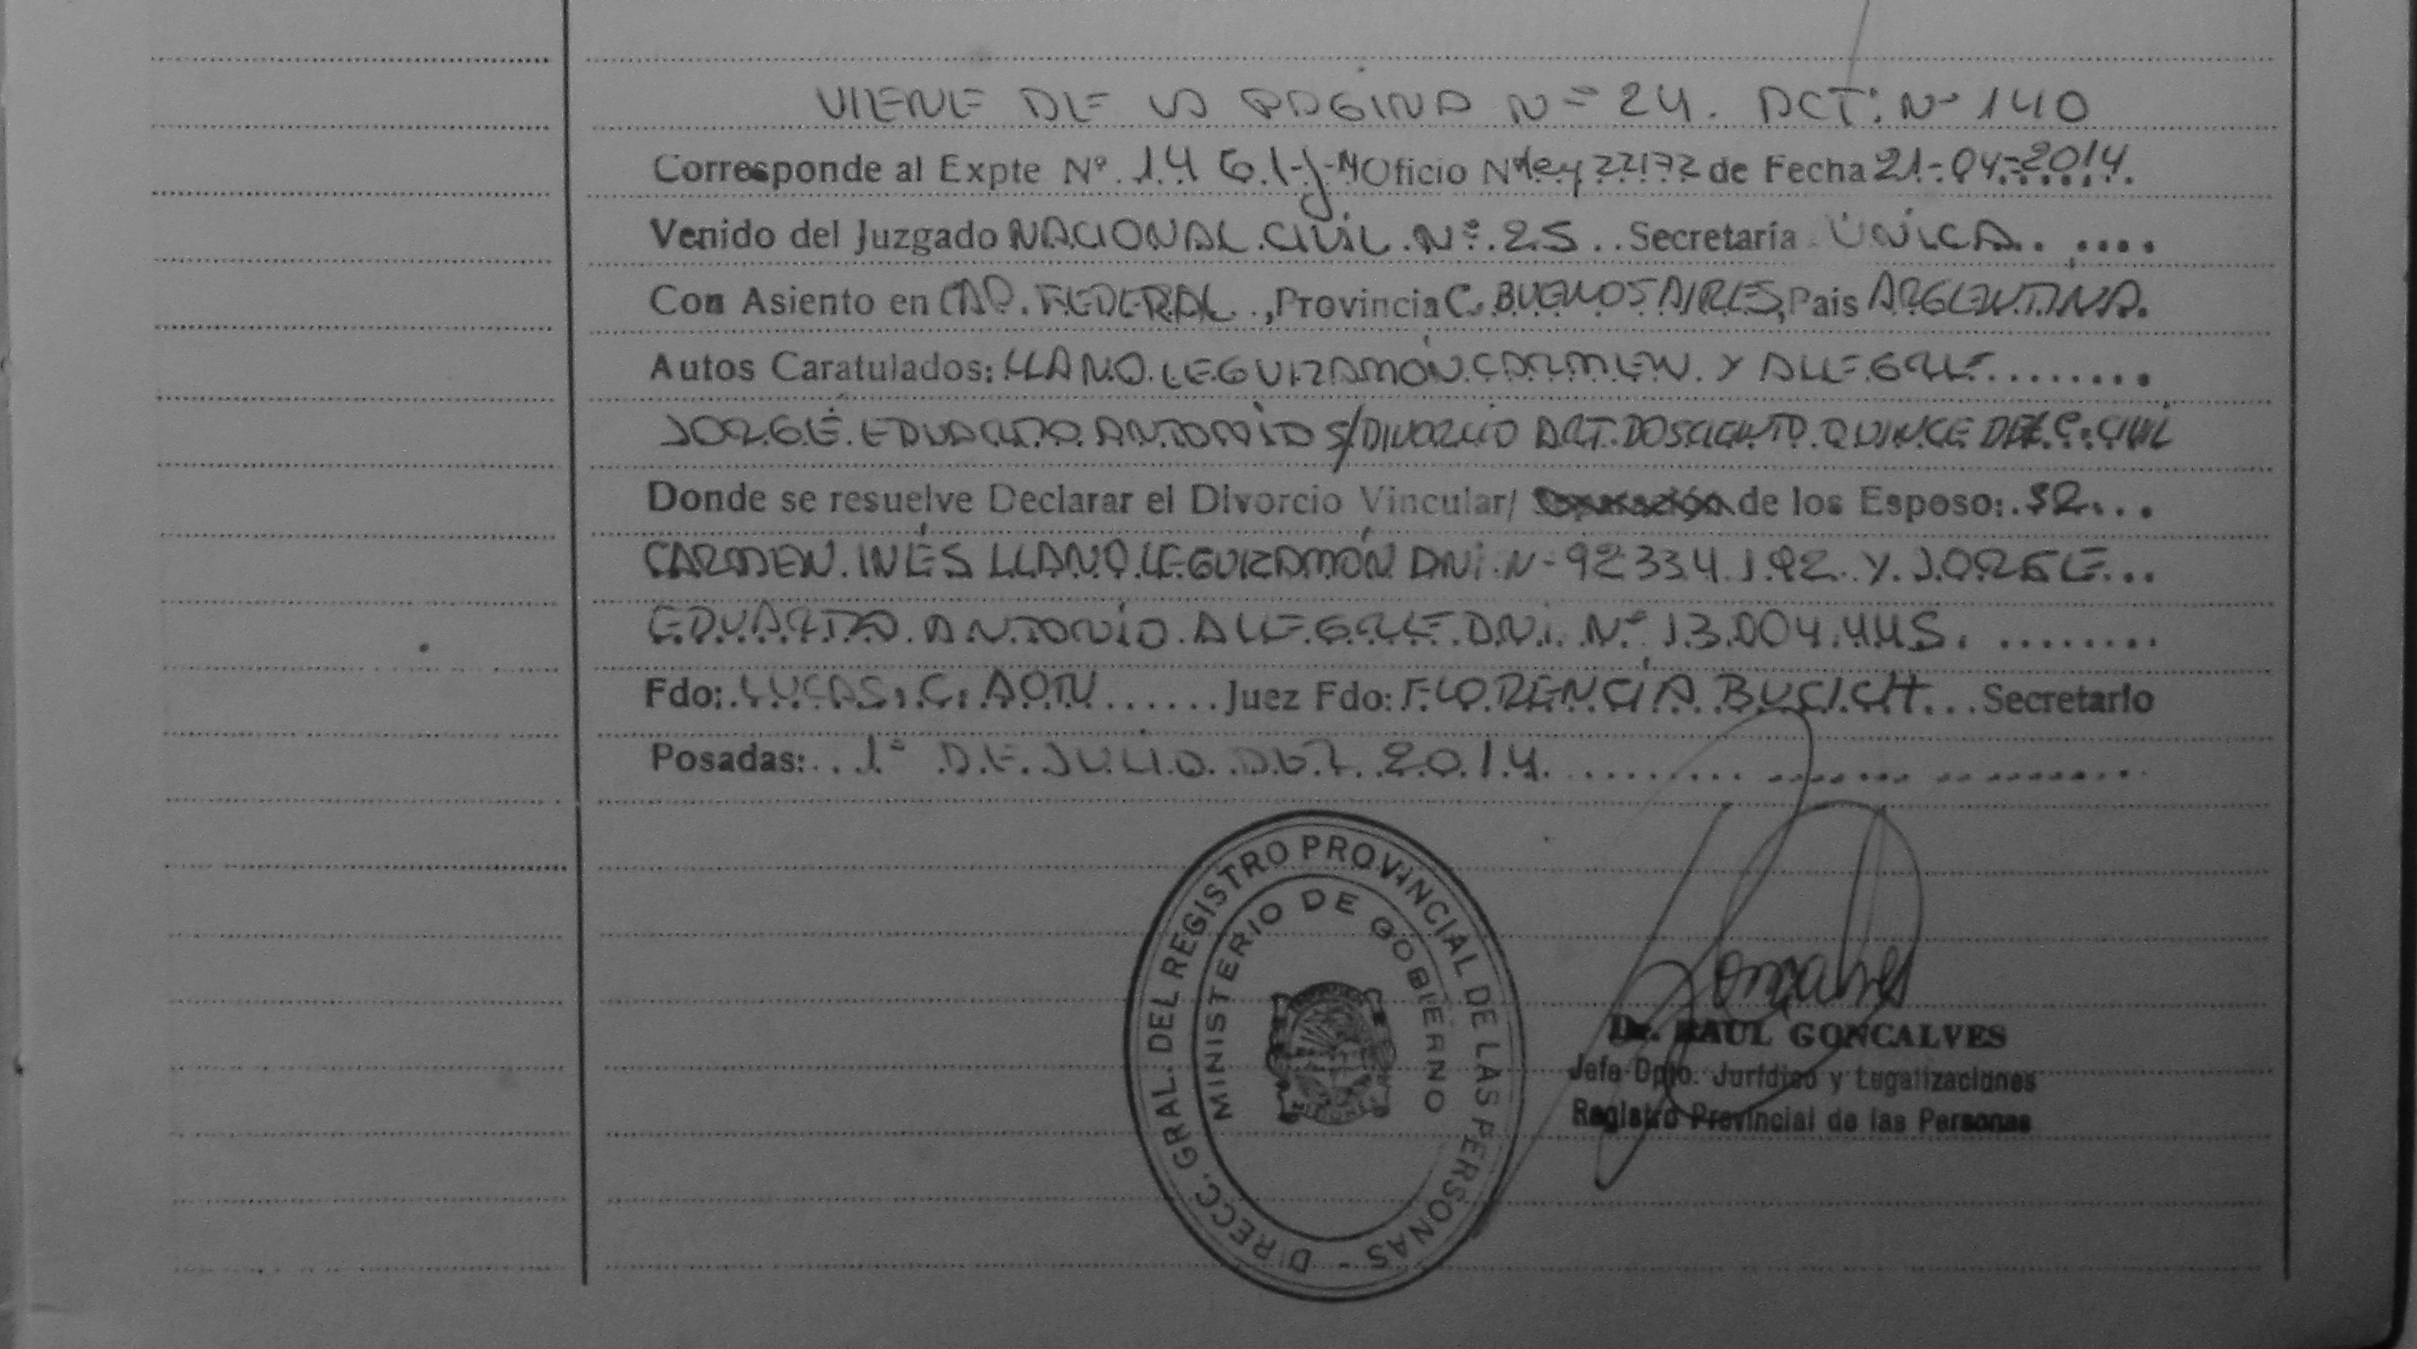 VIENE DE LA PAGINA Nº 24. ACT: Nº 140
Corresponde al Expte Nº. 1461-J- Oficio Nº ley 22172 de Fecha 21-04-2014.
Venido del Juzgado NACIONAL CIVIL Nº 25 .. Secretaría ÚNICA.. ....
Con Asiento en CAP. FEDERAL ., Provincia C. BUENOS AIRES, País ARGENTINA.
Autos Caratulados: LLANO LEGUIZAMÓN CARMEN Y ALLEGRE........
JORGE EDUARDO ANTONIO S/DIVORCIO ART. DOSCIENTO QUINCE DEL C. CIVIL
Donde se resuelve Declarar el Divorcio Vincular/ Separación de los Esposo: SR...
CARMEN INÉS LLANO LEGUIZAMÓN DNI Nº 92334192 Y JORGE...
EDUARDO ANTONIO ALLEGRE DNI. Nº 13.004.445. ........
Fdo: LUCAS. C. AON ...... Juez Fdo: FLORENCIA BUCICH... Secretario
Posadas: .. 1º DE JULIO DEL 2014. ........
DIRECC. GRAL. DEL REGISTRO PROVINCIAL DE LAS PERSONAS -
MINISTERIO DE GOBIERNO
Goncalves
Dr. RAUL GONCALVES
Jefe Dpto. Jurídico y Legalizaciones
Registro Provincial de las Personas